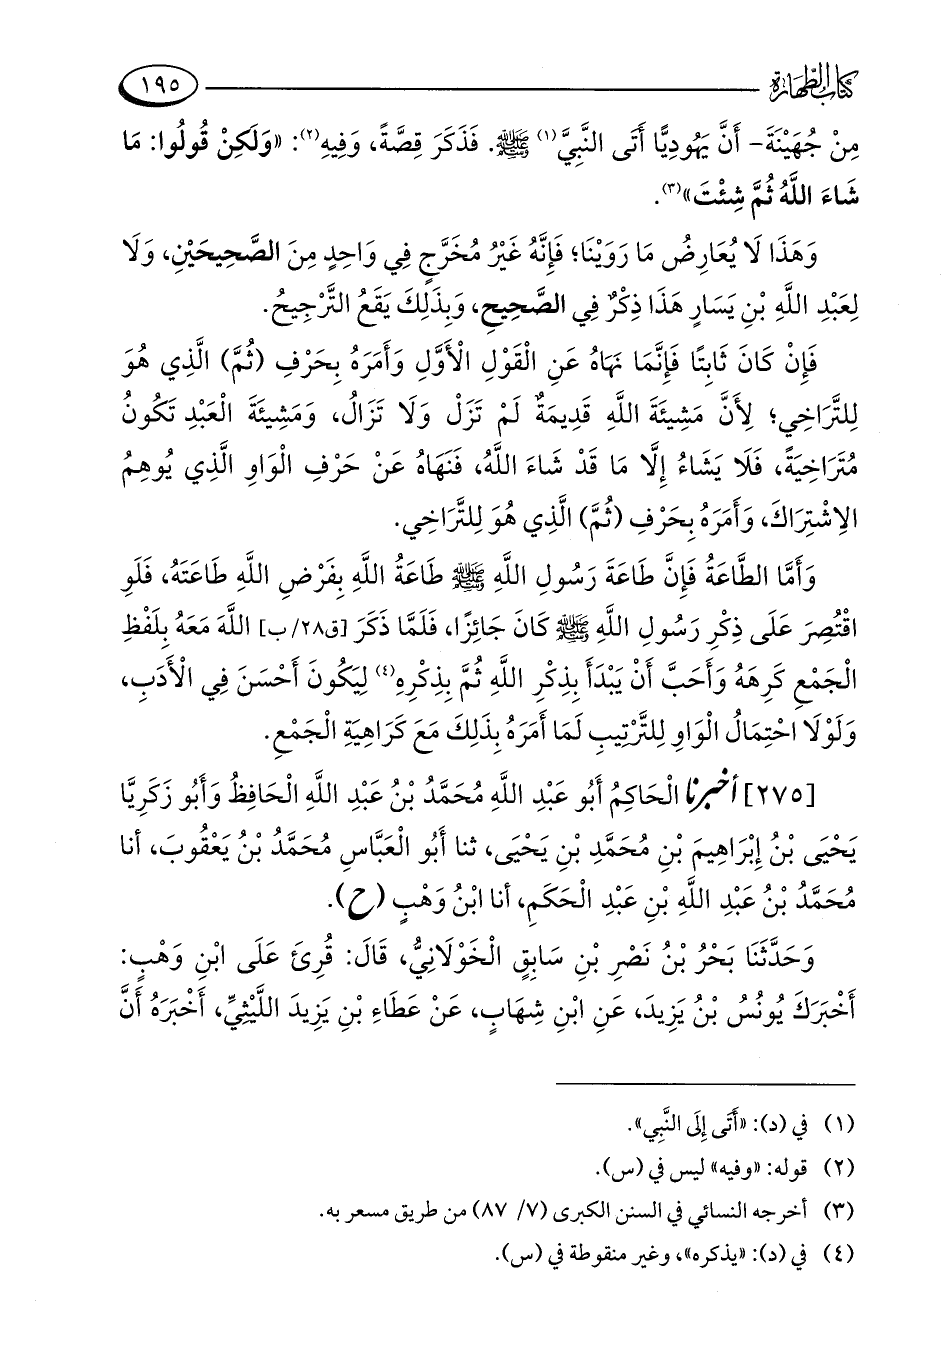 كتاب الطهارة ١٩٥
مِنْ جُهَيْنَةَ- أَنَّ يَهُودِيًّا أَتَى النَّبِيَّ(١) ﷺ. فَذَكَرَ قِصَّةً، وَفِيهِ(٢): «وَلَكِنْ قُولُوا: مَا
شَاءَ اللَّهُ ثُمَّ شِئْتَ»(٣).
وَهَذَا لَا يُعَارِضُ مَا رَوَيْنَا؛ فَإِنَّهُ غَيْرُ مُخَرَّجٍ فِي وَاحِدٍ مِنَ الصَّحِيحَيْنِ، وَلَا
لِعَبْدِ اللَّهِ بْنِ يَسَارٍ هَذَا ذِكْرٌ فِي الصَّحِيحِ، وَبِذَلِكَ يَقَعُ التَّرْجِيحُ.
فَإِنْ كَانَ ثَابِتًا فَإِنَّمَا نَهَاهُ عَنِ الْقَوْلِ الْأَوَّلِ وَأَمَرَهُ بِحَرْفِ (ثُمَّ) الَّذِي هُوَ
لِلتَّرَاخِي؛ لِأَنَّ مَشِيئَةَ اللَّهِ قَدِيمَةٌ لَمْ تَزَلْ وَلَا تَزَالُ، وَمَشِيئَةَ الْعَبْدِ تَكُونُ
مُتَرَاخِيَةً، فَلَا يَشَاءُ إِلَّا مَا قَدْ شَاءَ اللَّهُ، فَنَهَاهُ عَنْ حَرْفِ الْوَاوِ الَّذِي يُوهِمُ
الِاشْتِرَاكَ، وَأَمَرَهُ بِحَرْفِ (ثُمَّ) الَّذِي هُوَ لِلتَّرَاخِي.
وَأَمَّا الطَّاعَةُ فَإِنَّ طَاعَةَ رَسُولِ اللَّهِ ﷺ طَاعَةُ اللَّهِ بِفَرْضِ اللَّهِ طَاعَتَهُ، فَلَوِ
اقْتُصِرَ عَلَى ذِكْرِ رَسُولِ اللَّهِ ﷺ كَانَ جَائِزًا، فَلَمَّا ذَكَرَ [ق٢٨/ب] اللَّهَ مَعَهُ بِلَفْظِ
الْجَمْعِ كَرِهَهُ وَأَحَبَّ أَنْ يَبْدَأَ بِذِكْرِ اللَّهِ ثُمَّ بِذِكْرِهِ(٤) لِيَكُونَ أَحْسَنَ فِي الْأَدَبِ،
وَلَوْلَا احْتِمَالُ الْوَاوِ لِلتَّرْتِيبِ لَمَا أَمَرَهُ بِذَلِكَ مَعَ كَرَاهِيَةِ الْجَمْعِ.
[٢٧٥] أخبرنا الْحَاكِمُ أَبُو عَبْدِ اللَّهِ مُحَمَّدُ بْنُ عَبْدِ اللَّهِ الْحَافِظُ وَأَبُو زَكَرِيَّا
يَحْيَى بْنُ إِبْرَاهِيمَ بْنِ مُحَمَّدِ بْنِ يَحْيَى، ثنا أَبُو الْعَبَّاسِ مُحَمَّدُ بْنُ يَعْقُوبَ، أنا
مُحَمَّدُ بْنُ عَبْدِ اللَّهِ بْنِ عَبْدِ الْحَكَمِ، أنا ابْنُ وَهْبٍ (ح).
وَحَدَّثَنَا بَحْرُ بْنُ نَصْرِ بْنِ سَابِقٍ الْخَوْلَانِيُّ، قَالَ: قُرِئَ عَلَى ابْنِ وَهْبٍ:
أَخْبَرَكَ يُونُسُ بْنُ يَزِيدَ، عَنِ ابْنِ شِهَابٍ، عَنْ عَطَاءِ بْنِ يَزِيدَ اللَّيْثِيِّ، أَخْبَرَهُ أَنَّ
(١) في (د): «أَتَى إِلَى النَّبِي».
(٢) قوله: «وفيه» ليس في (س).
(٣) أخرجه النسائي في السنن الكبرى (٧/ ٨٧) من طريق مسعر به.
(٤) في (د): «يذكره»، وغير منقوطة في (س).